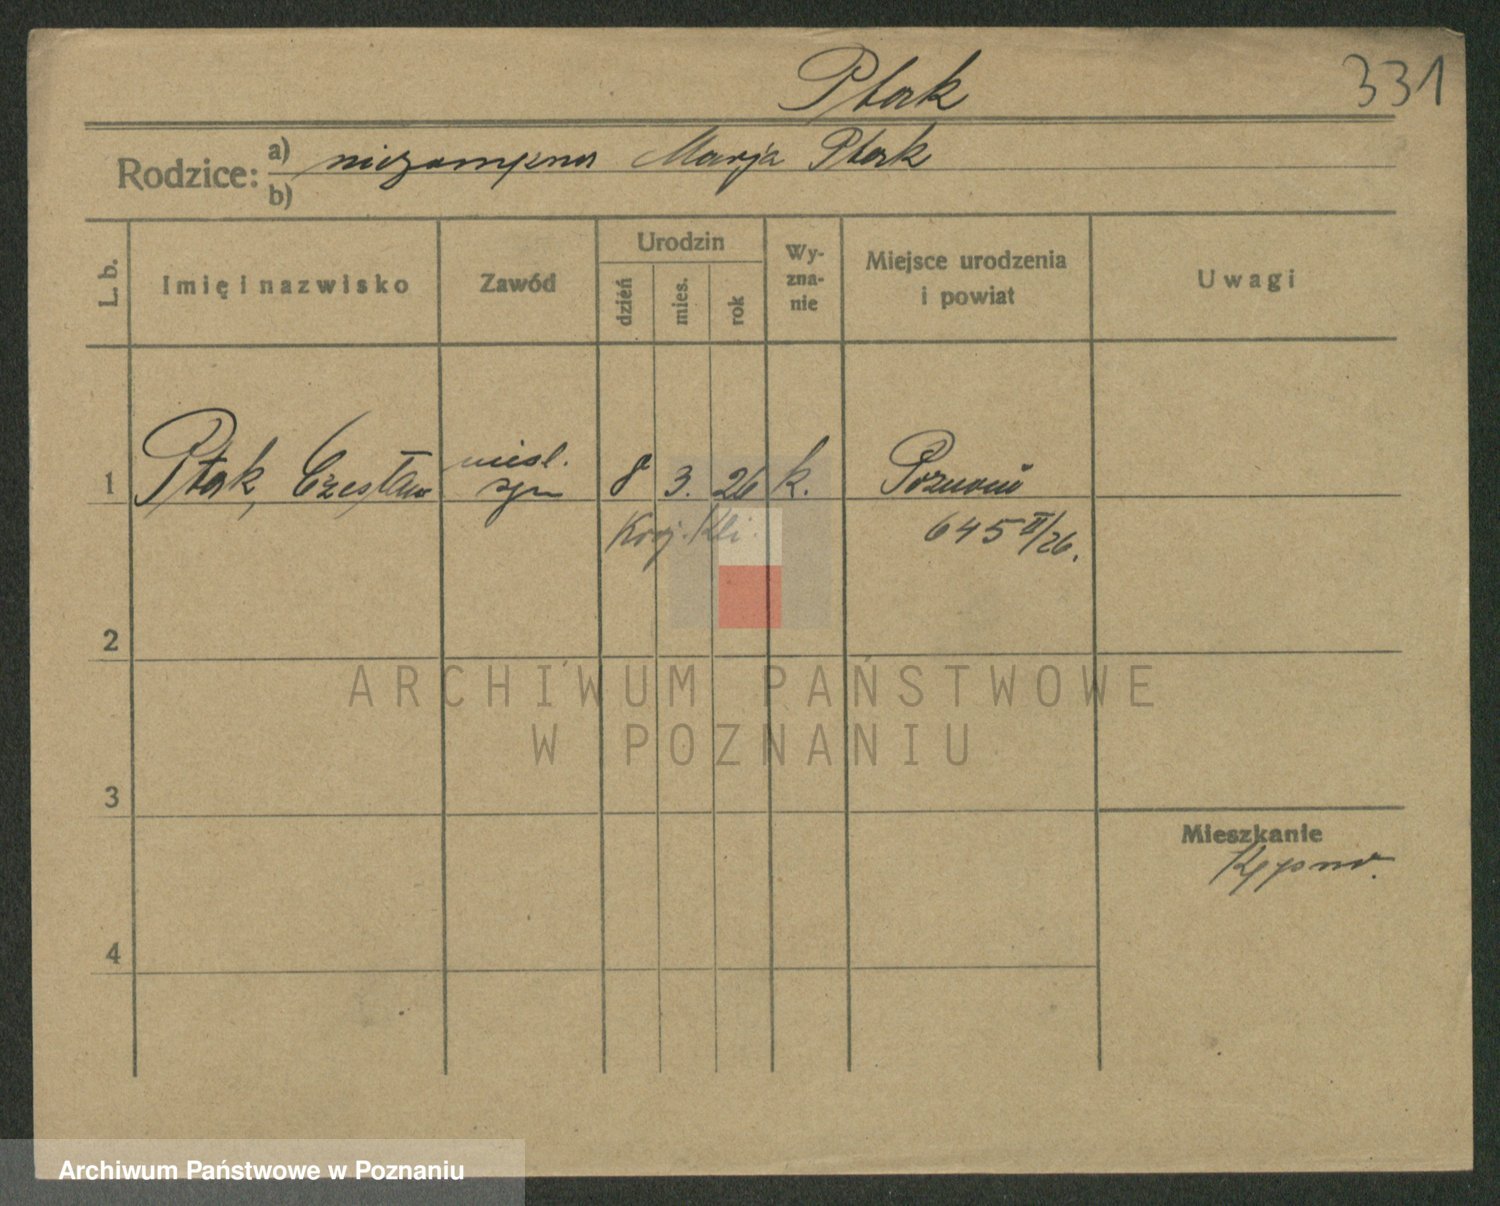 Ptak
331
Rodzice:
a) niezamężna Marja Ptak
b)
L. b.
Imię i nazwisko
Zawód
Urodzin
dzień
mies.
rok
Wy-
zna-
nie
Miejsce urodzenia
i powiat
Uwagi
1
Ptak, Czesław
nieśl.
syn
8
3.
26
k.
Poznań
645 II/26.
2
3
4
Mieszkanie
Kępno.
ARCHIWUM PAŃSTWOWE
W POZNANIU
Archiwum Państwowe w Poznaniu